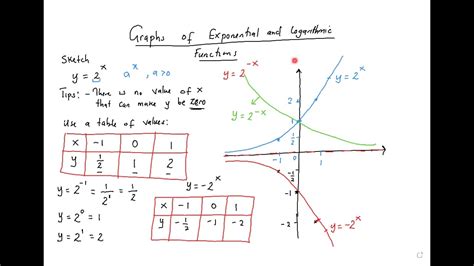 Graphs of Exponential and Logarithmic
Functions
Sketch
y = 2^x   a^x, a>0
Tips: - There is no value of x
that can make y be zero
Use a table of values:
x -1 0 1
y 1/2 1 2
y = 2^-1 = 1/2^1 = 1/2
y = 2^0 = 1
y = 2^1 = 2
y = -2^x
x -1 0 1
y -1/2 -1 -2
y = 2^-x
y = 2^x
y = 2^-x
2
1
1/2
-1
1
-1/2
-1
-2
y = -2^x